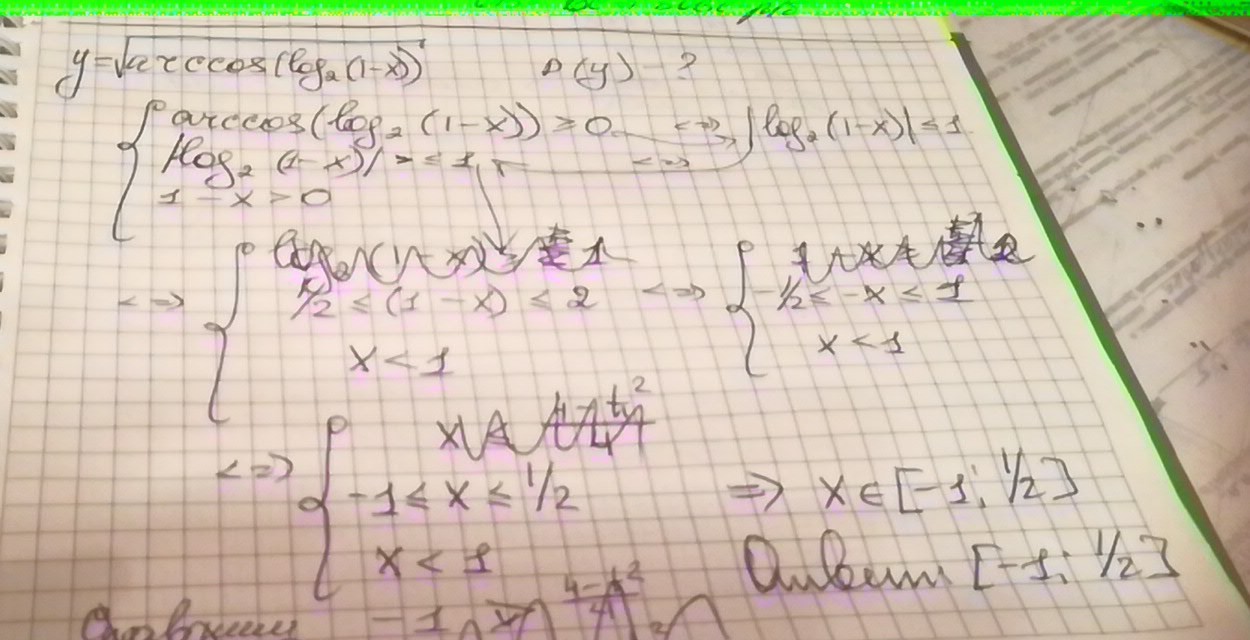 y=√arccos(log₂(1-x)) D(y) - ?
arccos(log₂ (1-x)) ≥ 0 <=> |log₂(1-x)| ≤ 1
|log₂ (1-x)| ≤ 1 <=>
1 - x > 0
<=> 1/2 ≤ (1-x) ≤ 2 <=> -1/2 ≤ -x ≤ 1
x < 1 x < 1
<=> -1 ≤ x ≤ 1/2 => x ∈ [-1; 1/2]
x < 1 Ответ: [-1; 1/2]